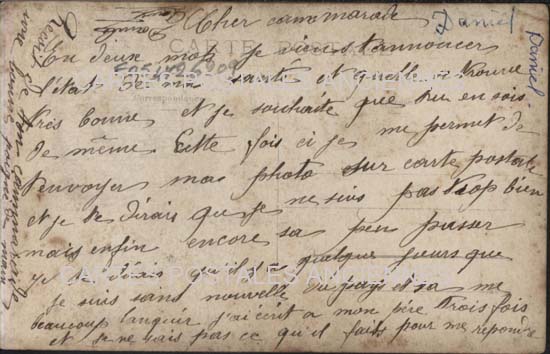 Cher cammarade
Daniel
Daniel
CARTE
En deux mots je viens t'annoncer
l'état de ma santé et quelle ce trouve
très bonne et je souhaite que tu en sois
Correspondance
de même Cette fois ci je me permet de
t'envoyer ma photo sur carte postale
et je te dirais que je ne suis pas trop bien
mais enfin encore sa peu passer
je te dirais qu'il y a quelque jours que
je suis sans nouvelle du pays et sa me
beaucoup languir j'ai écrit a mon père trois fois
et je ne sais pas ce qu'il fait pour me repondre
Reçois de ton cammarade
une bonne poignée de main
CARTES POSTALES ANCIENNES
CARTES POSTALES ANCIENNES